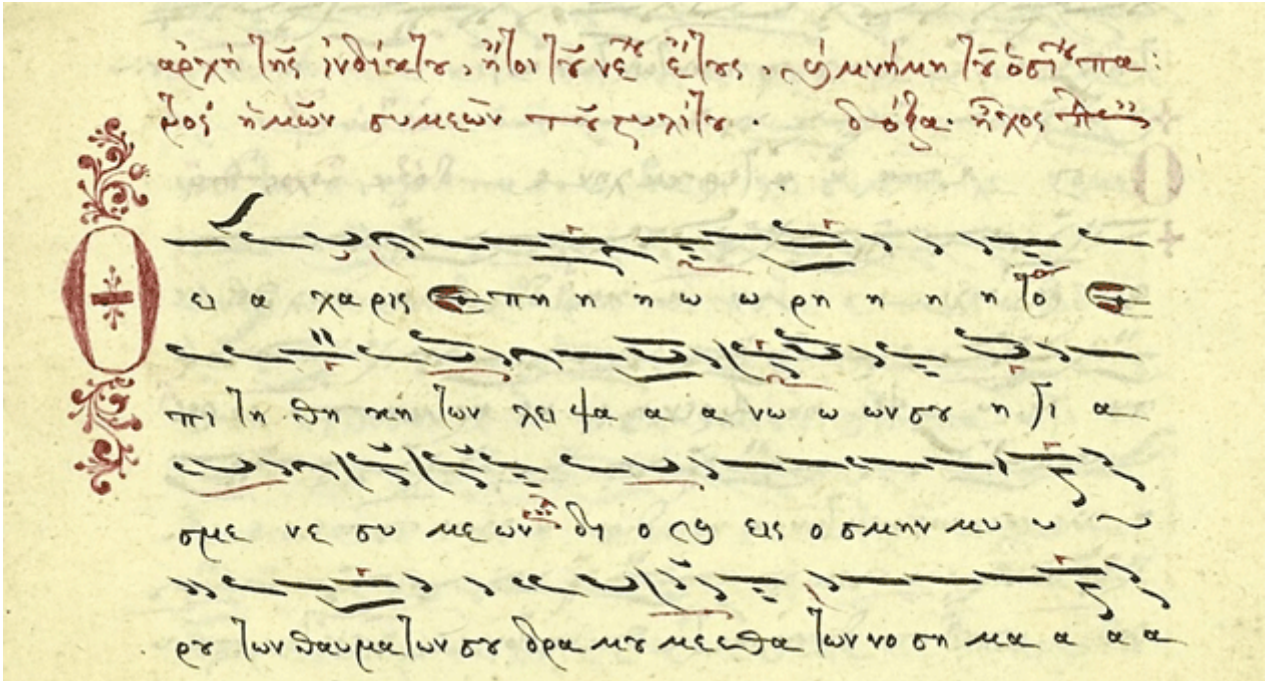 ἀρχὴ τῆς ἰνδίκτου, ἤτοι τοῦ νέου ἔτους, καὶ μνήμη τοῦ ὁσίου πα:
τρὸς ἡμῶν συμεὼν τοῦ στυλίτου. δόξα. ἦχος
Θ ει α χα ρις α πη η η ω ω ρη η η η το ε
πι τη θη κη των λει ψα α α α νω ω ων σου η γι α
σμε νε συ με ων δι ο και εις ο σμην μυ υ
ρου των θαυματων σου δρα μου με ε θα των νο ση μα α α α